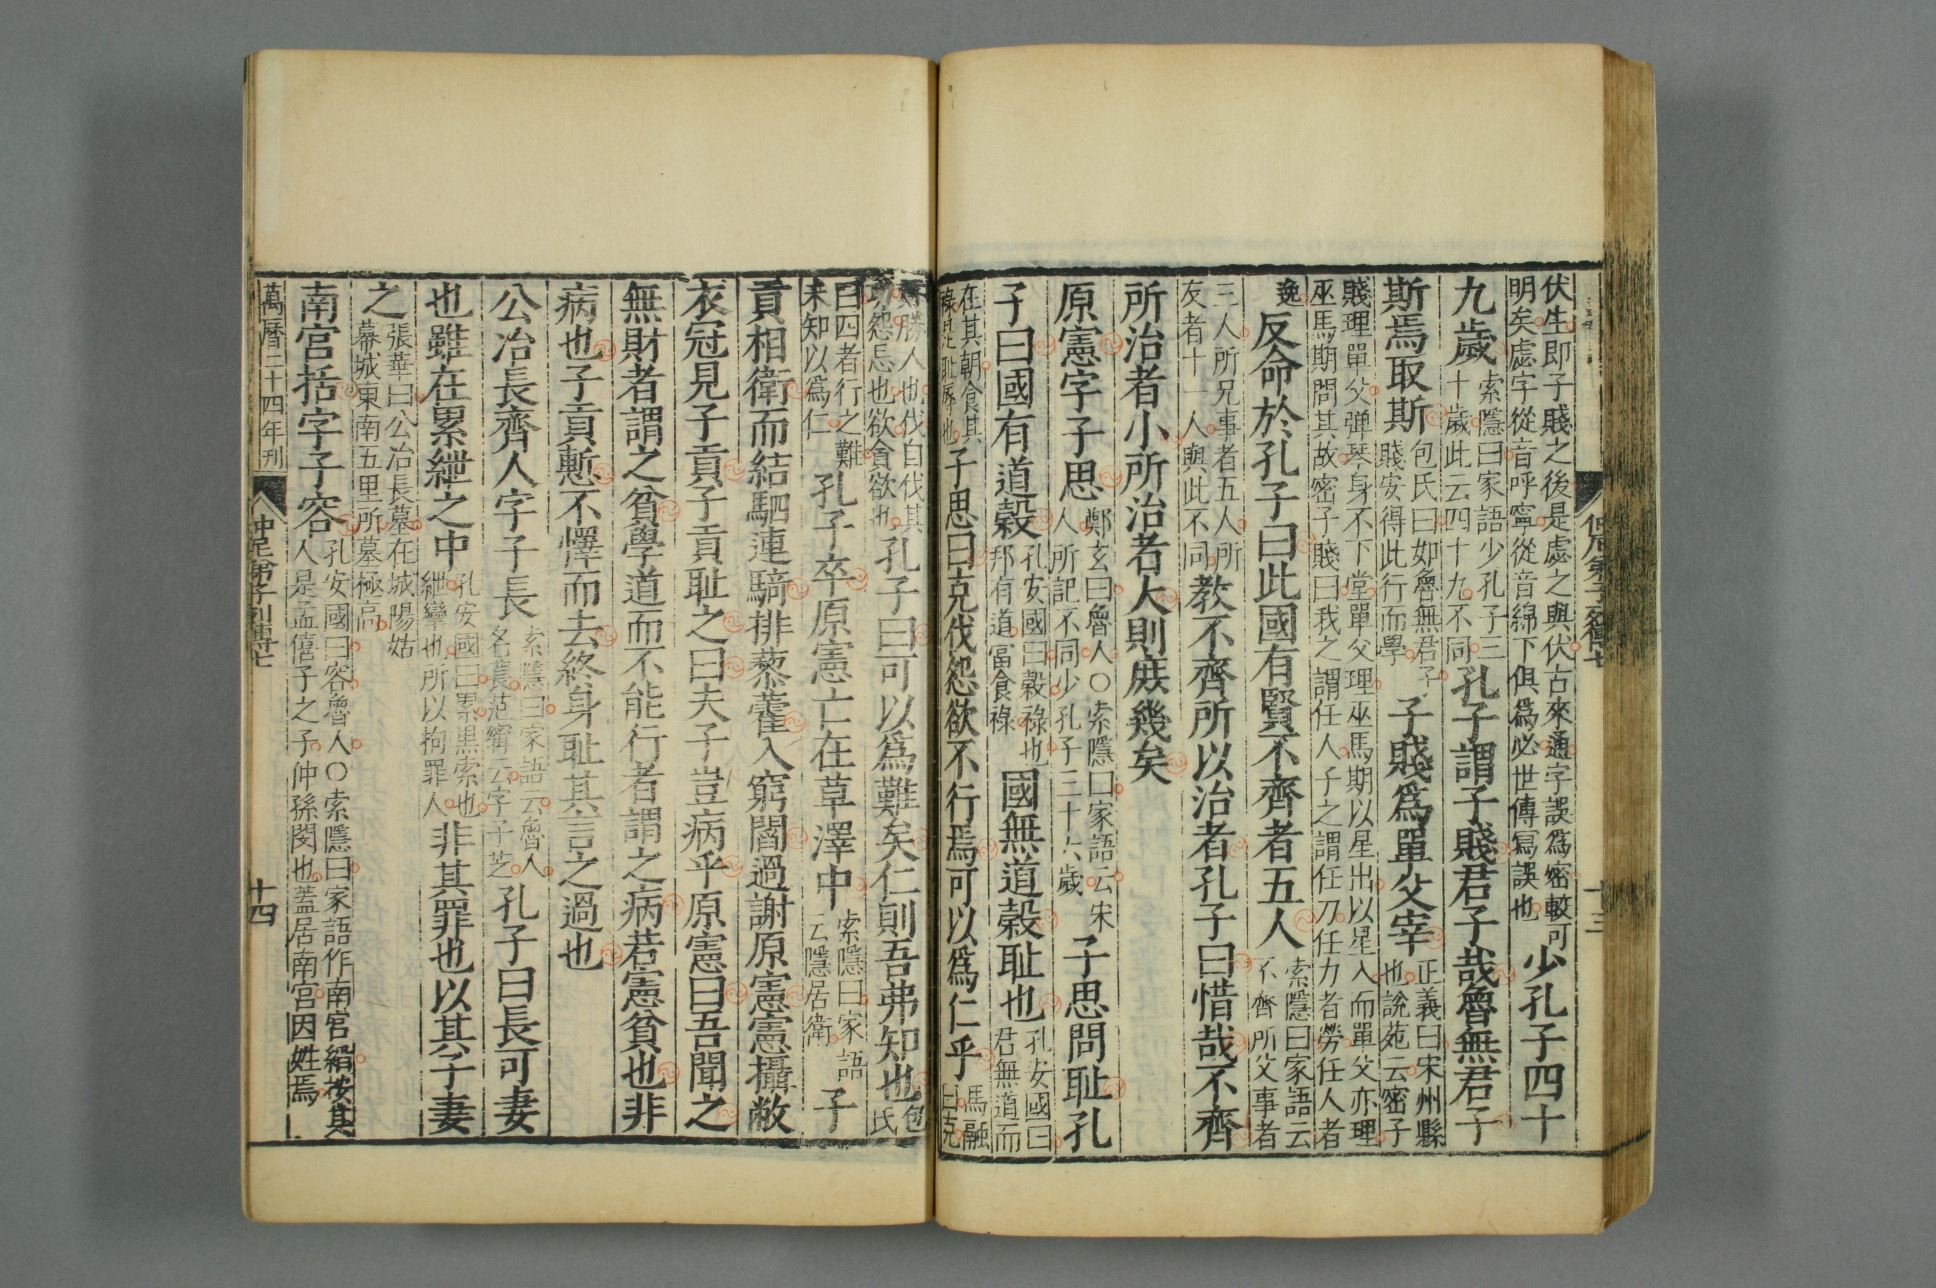 仲尼弟子列傳七
十三
伏生即子賤之後是虙之與伏古來通字誤爲密較可
明矣虙字從音呼寧從音綿下俱爲必世傳寫誤也
少孔子四十
九歲
索隱曰家語少孔子三
十歲此云四十九不同
孔子謂子賤君子哉魯無君子
斯焉取斯
包氏曰如魯無君子
賤安得此行而學
子賤爲單父宰
正義曰宋州縣
也說苑云密子
賤理單父彈琴身不下堂單父理巫馬期以星出以星入而單父亦理
巫馬期問其故密子賤曰我之謂任人子之謂任力任力者勞任人者
逸
反命於孔子曰此國有賢不齊者五人
索隱曰家語云
不齊所父事者
三人所兄事者五人所
友者十一人與此不同
教不齊所以治者孔子曰惜哉不齊
所治者小所治者大則庶幾矣
原憲字子思
鄭玄曰魯人〇索隱曰家語云宋
人所記不同少孔子三十六歲
子思問耻孔
子曰國有道穀
孔安國曰穀祿也
邦有道當食祿
國無道穀耻也
孔安國曰
君無道而
在其朝食其
祿是耻辱也
子思曰克伐怨欲不行焉可以爲仁乎
馬融
曰克
好勝人也伐自伐其
功怨忌也欲貪欲也
孔子曰可以爲難矣仁則吾弗知也
包
氏
曰四者行之難
未知以爲仁
孔子卒原憲亡在草澤中
索隱曰家語
云隱居衛
子
貢相衛而結駟連騎排藜藿入窮閻過謝原憲憲攝敝
衣冠見子貢子貢耻之曰夫子豈病乎原憲曰吾聞之
無財者謂之貧學道而不能行者謂之病若憲貧也非
病也子貢慙不懌而去終身耻其言之過也
公冶長齊人字子長
索隱曰家語云魯人
名萇范甯云字子芝
孔子曰長可妻
也雖在累紲之中
孔安國曰累黑索也
紲攣也所以拘罪人
非其罪也以其子妻
之
張華曰公冶長墓在城陽姑
幕城東南五里所墓極高
南宮括字子容
孔安國曰容魯人〇索隱曰家語作南宮縚按其
人是孟僖子之子仲孫閱也蓋居南宮因姓焉
萬曆二十四年刊
仲尼弟子列傳七
十四